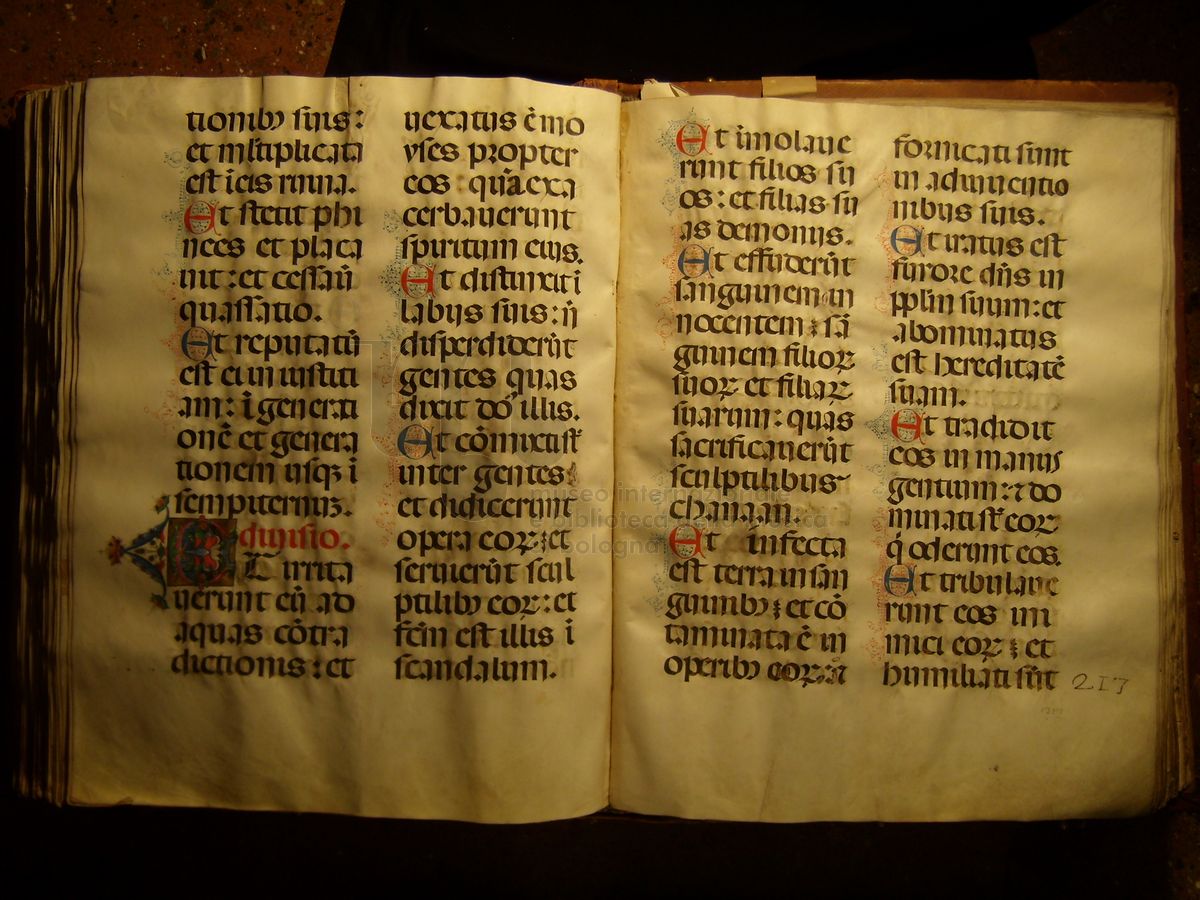 tionibꝫ suis:
et mĺtiplicata
est ĩeis ruina.
Et stetit phi
nees et placa
uit: et cessaũ
quassatio.
Et reputatũ
est ei in iustiti
am: ĩ generati
onẽ et genera
tionem usqꝫ ĩ
sempiternũ.
diuisio.
Et irrita
uerunt eũ ad
aquas cõtra
dictionis: et
uexatus ẽ mo
yses propter
eos: quia exa
cerbauerunt
spiritum eius.
Et distinxit ĩ
labijs suis: ñ
disperdiderũt
gentes quas
dixit dõ illis.
Et cõmixti sũt
inter gentes:
et didicerunt
opera eoꝝ: et
seruierũt scul
ptilibꝫ eoꝝ: et
fcm̃ est illis ĩ
scandalum.
Et ĩmolaue
runt filios su
os: et filias su
as demonijs.
Et effuderũt
sanguinem in
nocentem: sã
guinem filioꝝ
suoꝝ et filiaꝝ
suarum: quas
sacrificauerũt
sculptilibus
chanaan.
Et infecta
est terra in san
guinibꝫ: et cõ
taminata ẽ in
operibꝫ eoꝝ: ⁊
fornicati sunt
in adinuentio
nibus suis.
Et iratus est
furore dñs in
pplm̃ suum: et
abominatus
est hereditatẽ
suam.
Et tradidit
eos in manus
gentium: ⁊ do
minati sũt eoꝝ
q̇ oderunt eos.
Et tribulaue
runt eos ini
mici eoꝝ: et
humiliati sũt
217
museo internazionale
e biblioteca della musica
bologna